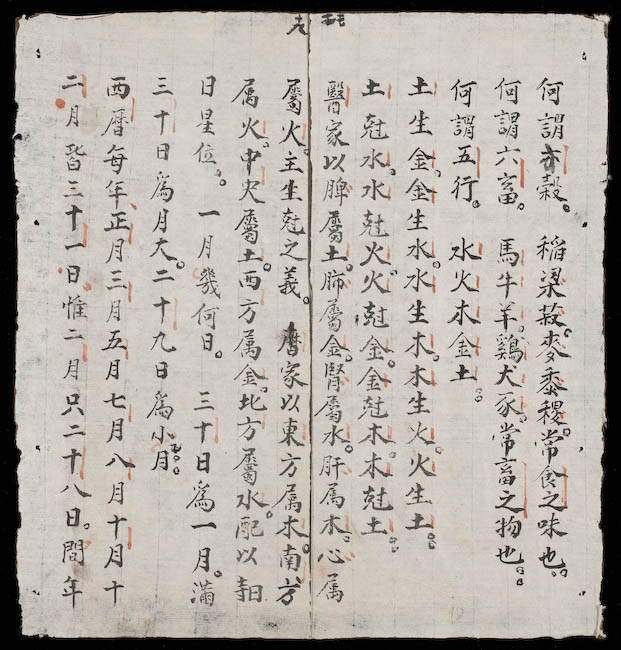 何謂六穀。 稻梁菽。麥黍稷。常食之味也。
何謂六畜。 馬牛羊。鷄犬豕。常畜之物也。
何謂五行。 水火木金土。
土生金。金生水。水生木。木生火。火生土。
土尅水。水尅火。火尅金。金尅木。木尅土。
醫家以脾屬土。肺屬金。腎屬水。肝属木。心属
屬火。主生尅之義。 曆家以東方属木。南方
属火。中央屬土。西方属金。北方屬水。配以
日星位。 一月幾何日。 三十日爲一月。滿
三十日爲月大。二十九日爲小月。
西曆每年正月三月五月七月八月十月十
二月皆三十一日。惟二月只二十八日。間年